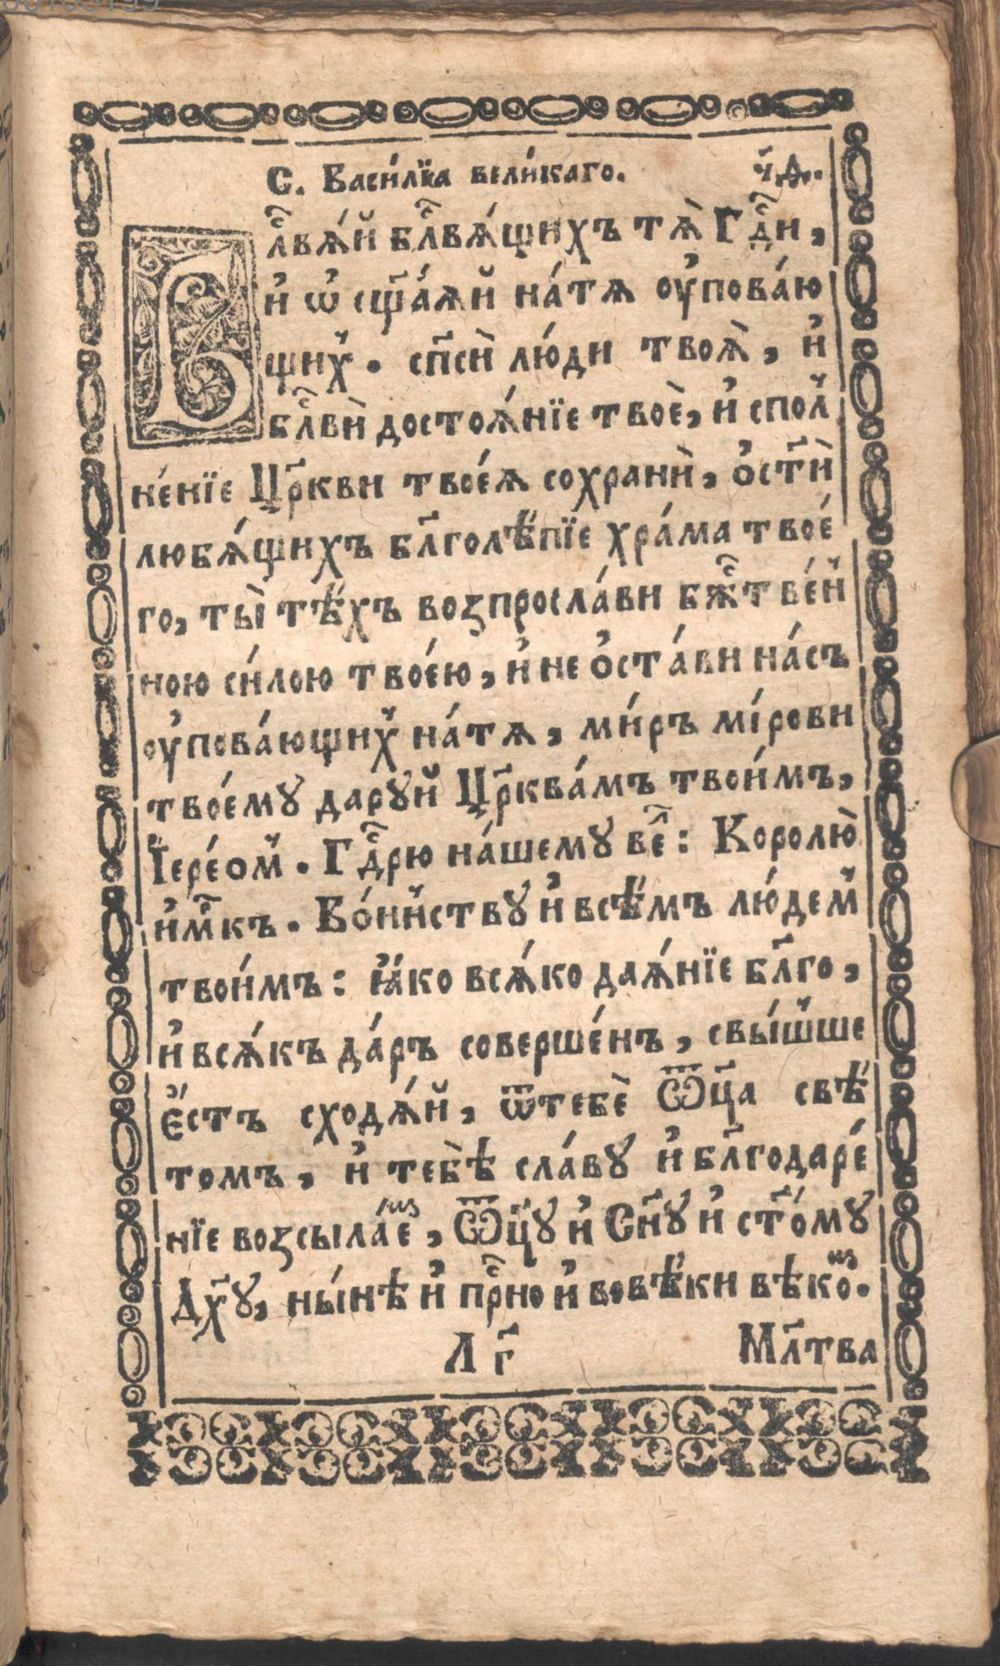 С. Васи́лїа вели́каго. ч҃ѳ.
Бл҃гвѧ́й бл҃гвѧ́щихъ тѧ̀ Гдⷭ҇и,
и҆ ѡ҆сщ҃а́ѧй на́тѧ оу҆пова́ю
щихⷯ. сп҃сѝ лю́ди твоѧ̀, и҆
бл҃гвѝ достоѧ́нїе твоѐ, и҆ спол
не́нїе Цр҃кви твоеѧ́ сохранѝ, о҆ст҃ѝ
любѧ́щихъ бл҃голѣ́пїе хра́ма твое́
го, ты̀ тѣ́хъ возпросла́ви бж҃тве́н
ною си́лою твое́ю, и҆ не о҆ста́ви на́съ
оу҆пова́ющихⷯ на́тѧ, ми́ръ мі́рови
твоему́ дару́й Цр҃ква́мъ твои́мъ,
І҆ере́омⷨ. Гдⷭ҇рю на́шему веⷧ: Королю̀
и҆мⷬ҇къ. Во́инству и҆ всѣ́мъ лю́демⷨ
твои́мъ: ꙗ҆́ко всѧ́ко даѧ́нїе бл҃го,
и҆ всѧ́къ да́ръ соверше́нъ, свы́шше
є҆́стъ сходѧ́й, ѿтебѐ Ѿц҃а свѣ́
томъ, и҆ тебѣ̀ сла́ву и҆ бл҃годаре́
нїе возсыла́еⷨ, Ѿц҃у и҆ Сн҃у и҆ ст҃о́му
Дх҃у, ны́нѣ и҆ прⷭ҇но и҆ вовѣ́ки вѣкоⷨ.
Л г҃ Мл҃тва